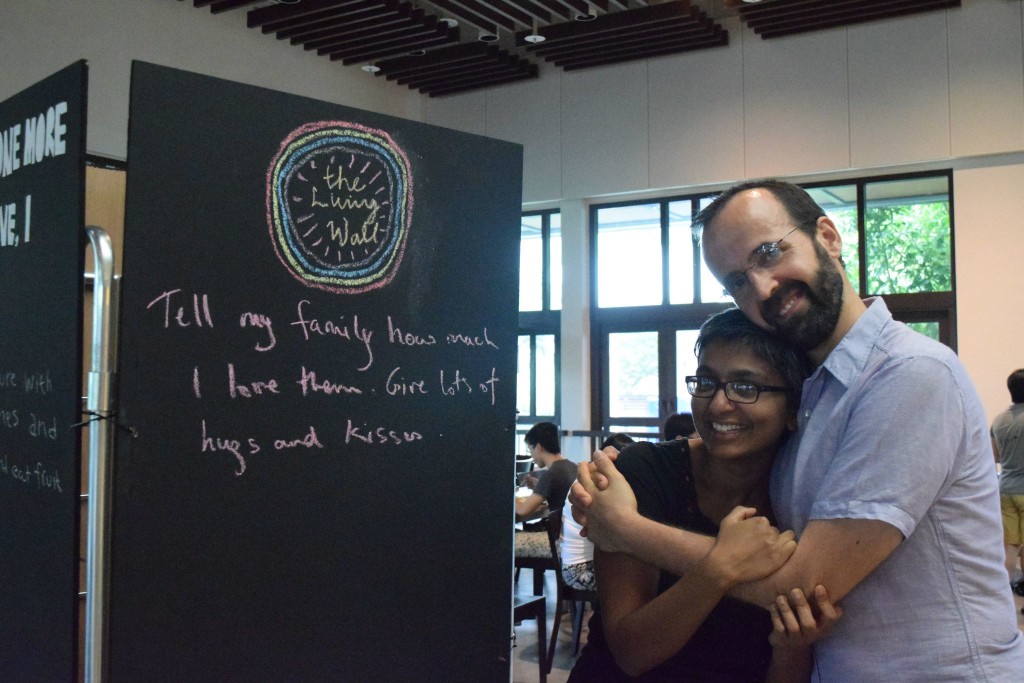 ONE MORE
VE, I
ure with
nes and
d eat fruit
the
Living
Wall
Tell my family how much
I love them. Give lots of
hugs and kisses.